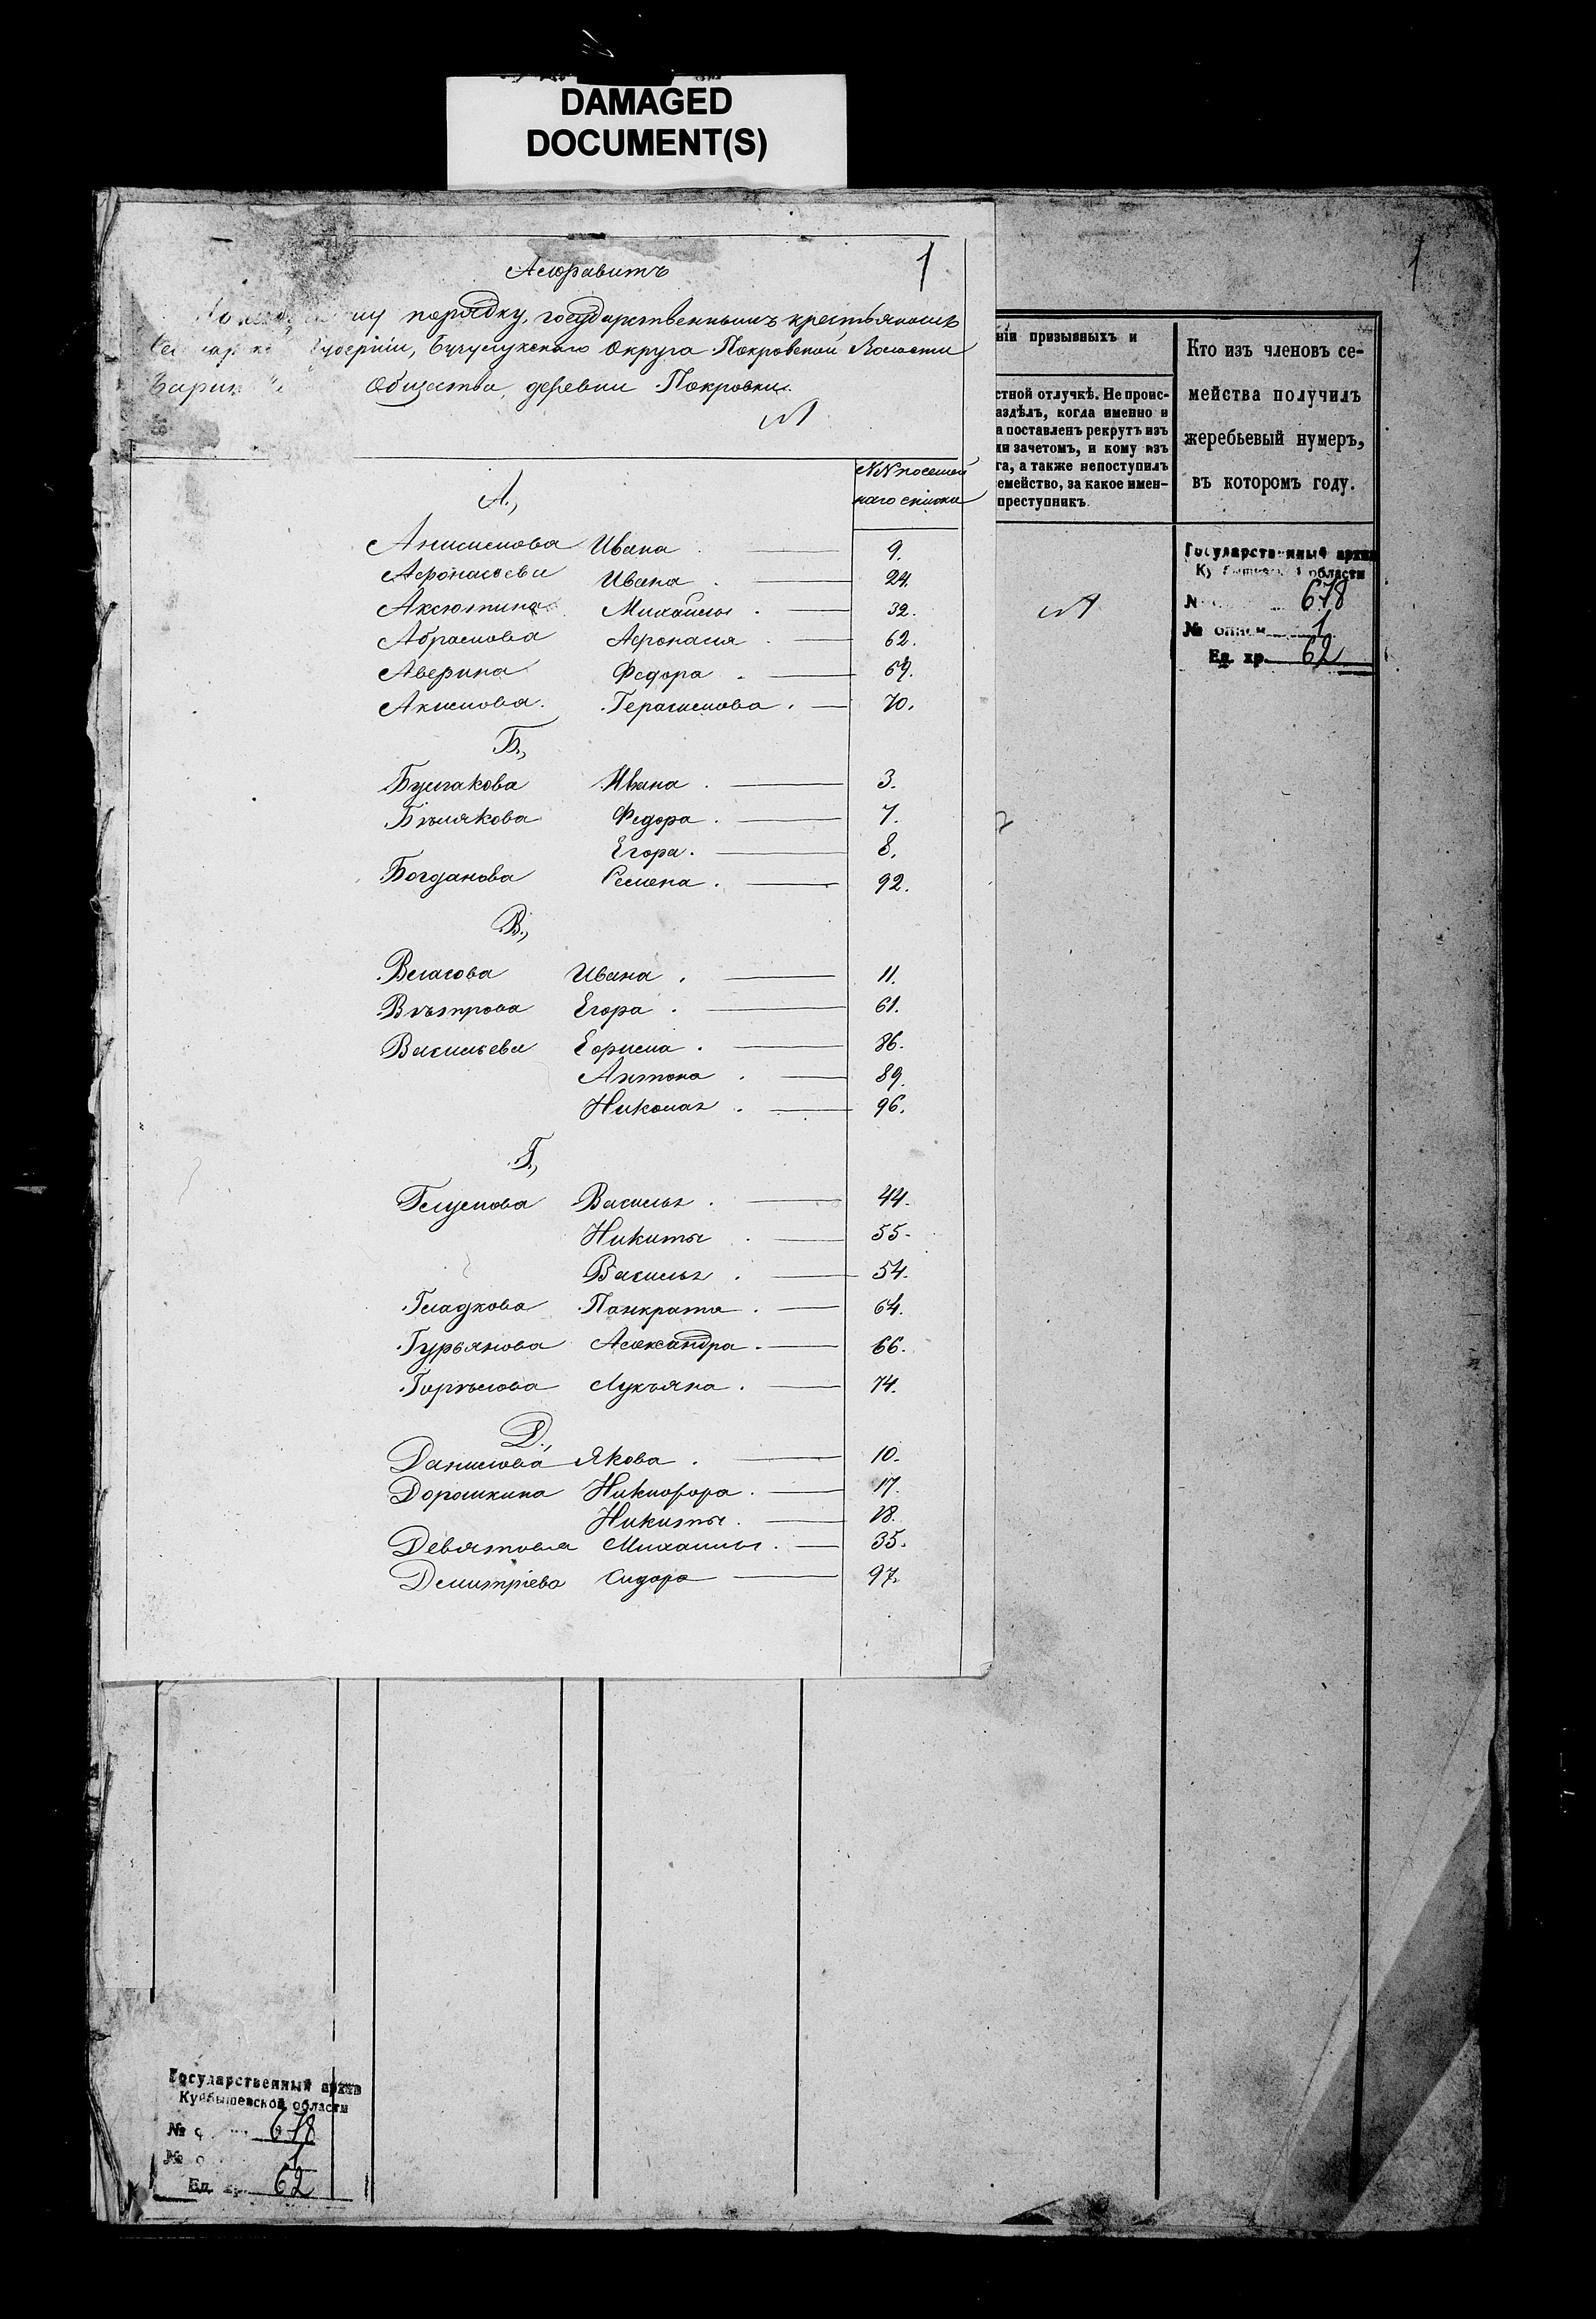 DAMAGED
DOCUMENT(S)
Алфавитъ
1
порядку, государственнымъ крестьянамъ
Губерніи, Бузулукскаго Округа Покровской Волости
Общества, деревни Покровки.
№№ посемей
наго списка
А.,
Анисимова Ивана . 9.
Афонасьева Ивана . 24.
Аксютина Михайлы . 32.
Абрамова Афонасия . 62.
Аверина Федора . 69.
Акимова. Герасимова . 70.
Б.,
Булгакова Ивана . 3.
Бѣлякова Федора . 7.
Егора . 8.
Богданова Семена . 92.
В.,
Власова Ивана . 11.
Вѣтрова Егора . 61.
Васильева Ефима . 86.
Антона . 89.
Николая . 96.
Г.,
Глумова Василья . 44.
Никиты . 55.
Василья . 54.
Гладкова Панкрата . 64.
Гурьянова Александра . 66.
Горѣлова Лукьяна . 74.
Д.,
Данилова Якова . 10.
Дорошкина Никифора . 17.
Никиты . 18.
Девятова Михаилы . 35.
Дмитріева Сидора 97.
1
ніи призывныхъ и
стной отлучкѣ. Не проис-
аздѣлъ, когда именно и
а поставленъ рекрутъ изъ
ми зачетомъ, и кому изъ
га, а также непоступилъ
емейство, за какое имен-
преступникъ.
Кто изъ членовъ се-
мейства получилъ
жеребьевый нумеръ,
въ которомъ году.
Государственный архив
области
№ 678
№ описи 1
Ед. хр. 62
Государственный архив
Куйбышевской области
№ 678
№ 1
Ед. хр. 62